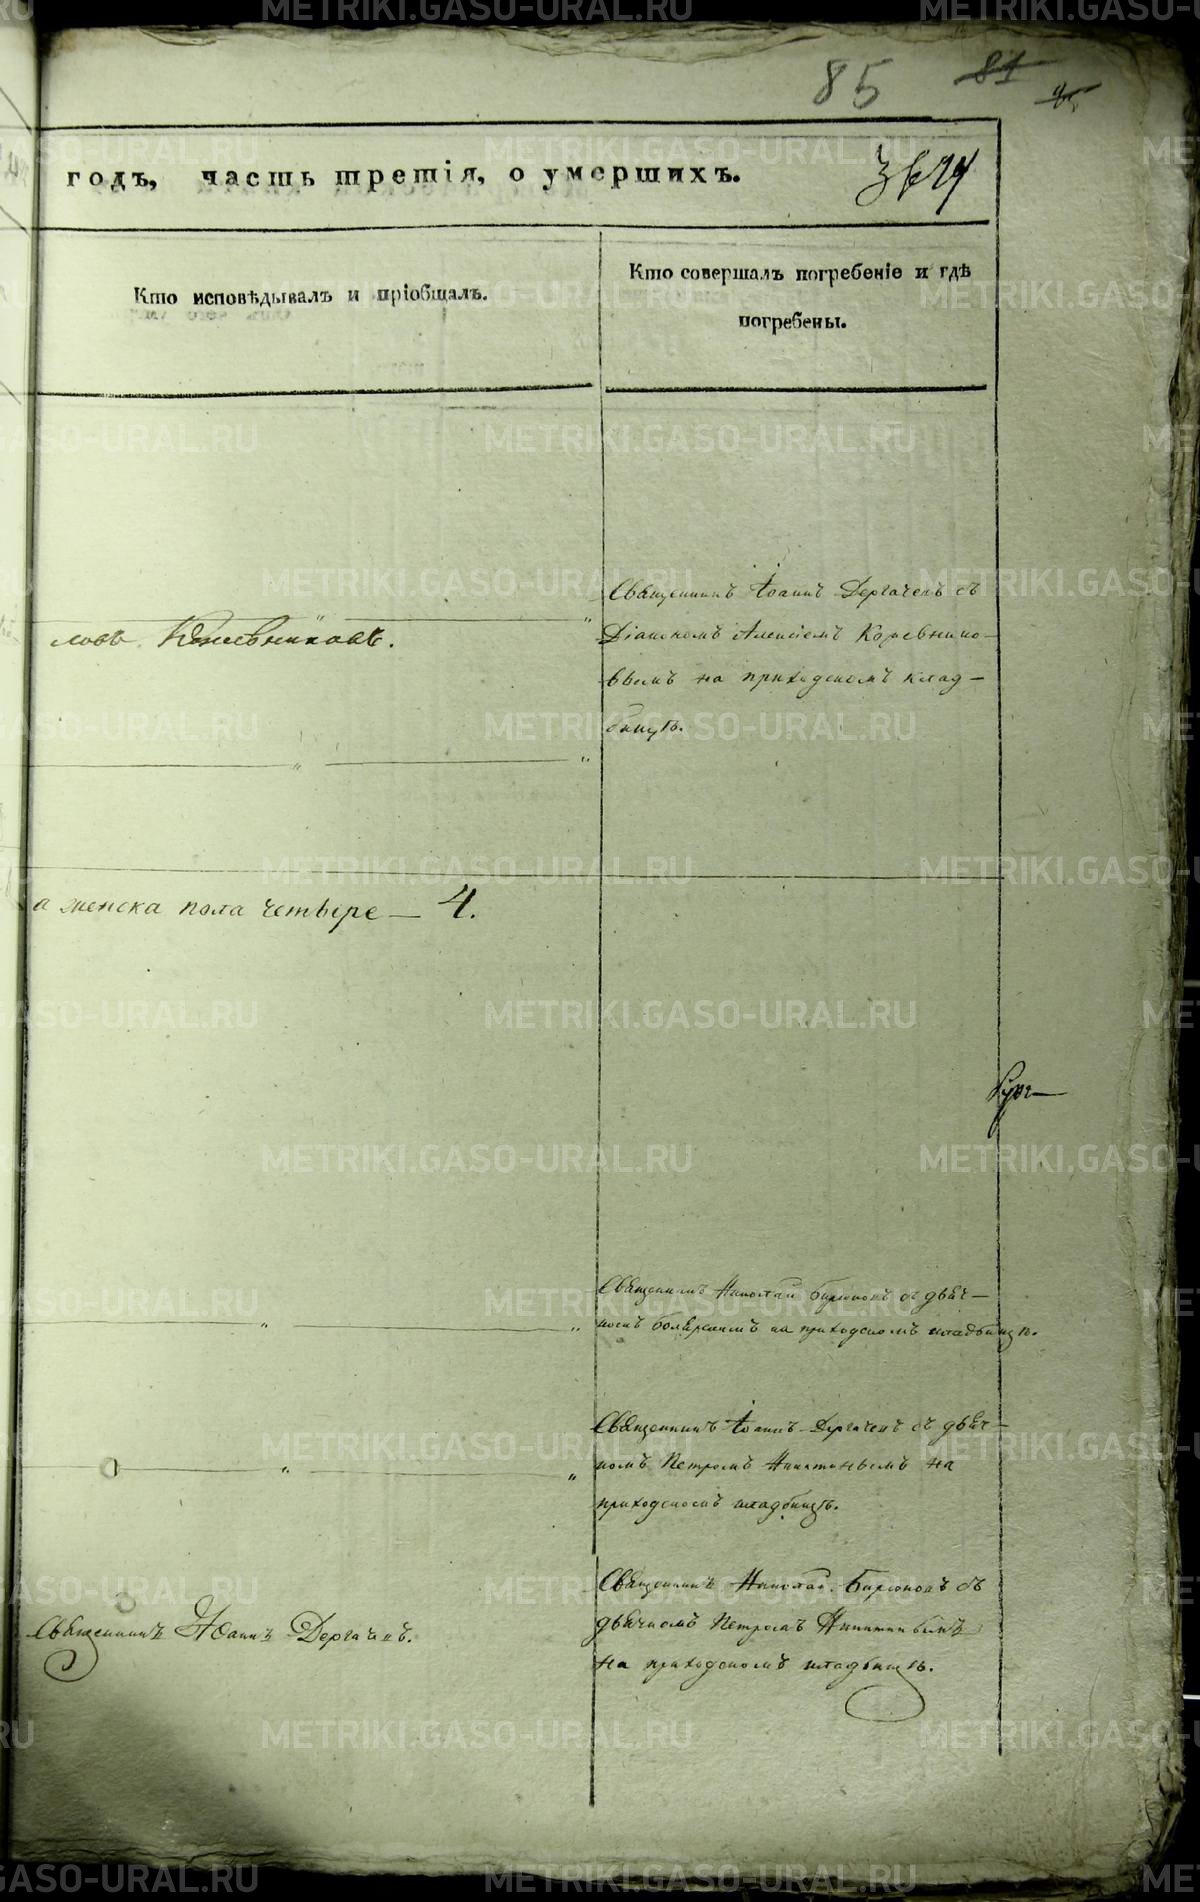 85 81
годъ, часть третія, о умершихъ.
Кто исповѣдывалъ и пріобщалъ.
Кто совершалъ погребеніе и гдѣ
погребены.
Священникъ Іоаннъ Дергачевъ съ
Діакономъ Алексіемъ Кожевнико-
вымъ на приходскомъ клад-
бищѣ.
ловъ Кожевниковъ.
а женска пола четыре — 4.
Священникъ Николай Бирюковъ съ дьяч-
комъ на приходскомъ кладбищѣ.
Священникъ Іоаннъ Дергачевъ съ дьяч-
комъ Петромъ Никитинымъ на
приходскомъ кладбищѣ.
Священникъ Іоаннъ Дергачевъ.
Священникъ Николай Бирюковъ съ
дьячкомъ Петромъ Никитинымъ
на приходскомъ кладбищѣ.
METRIKI.GASO-URAL.RU